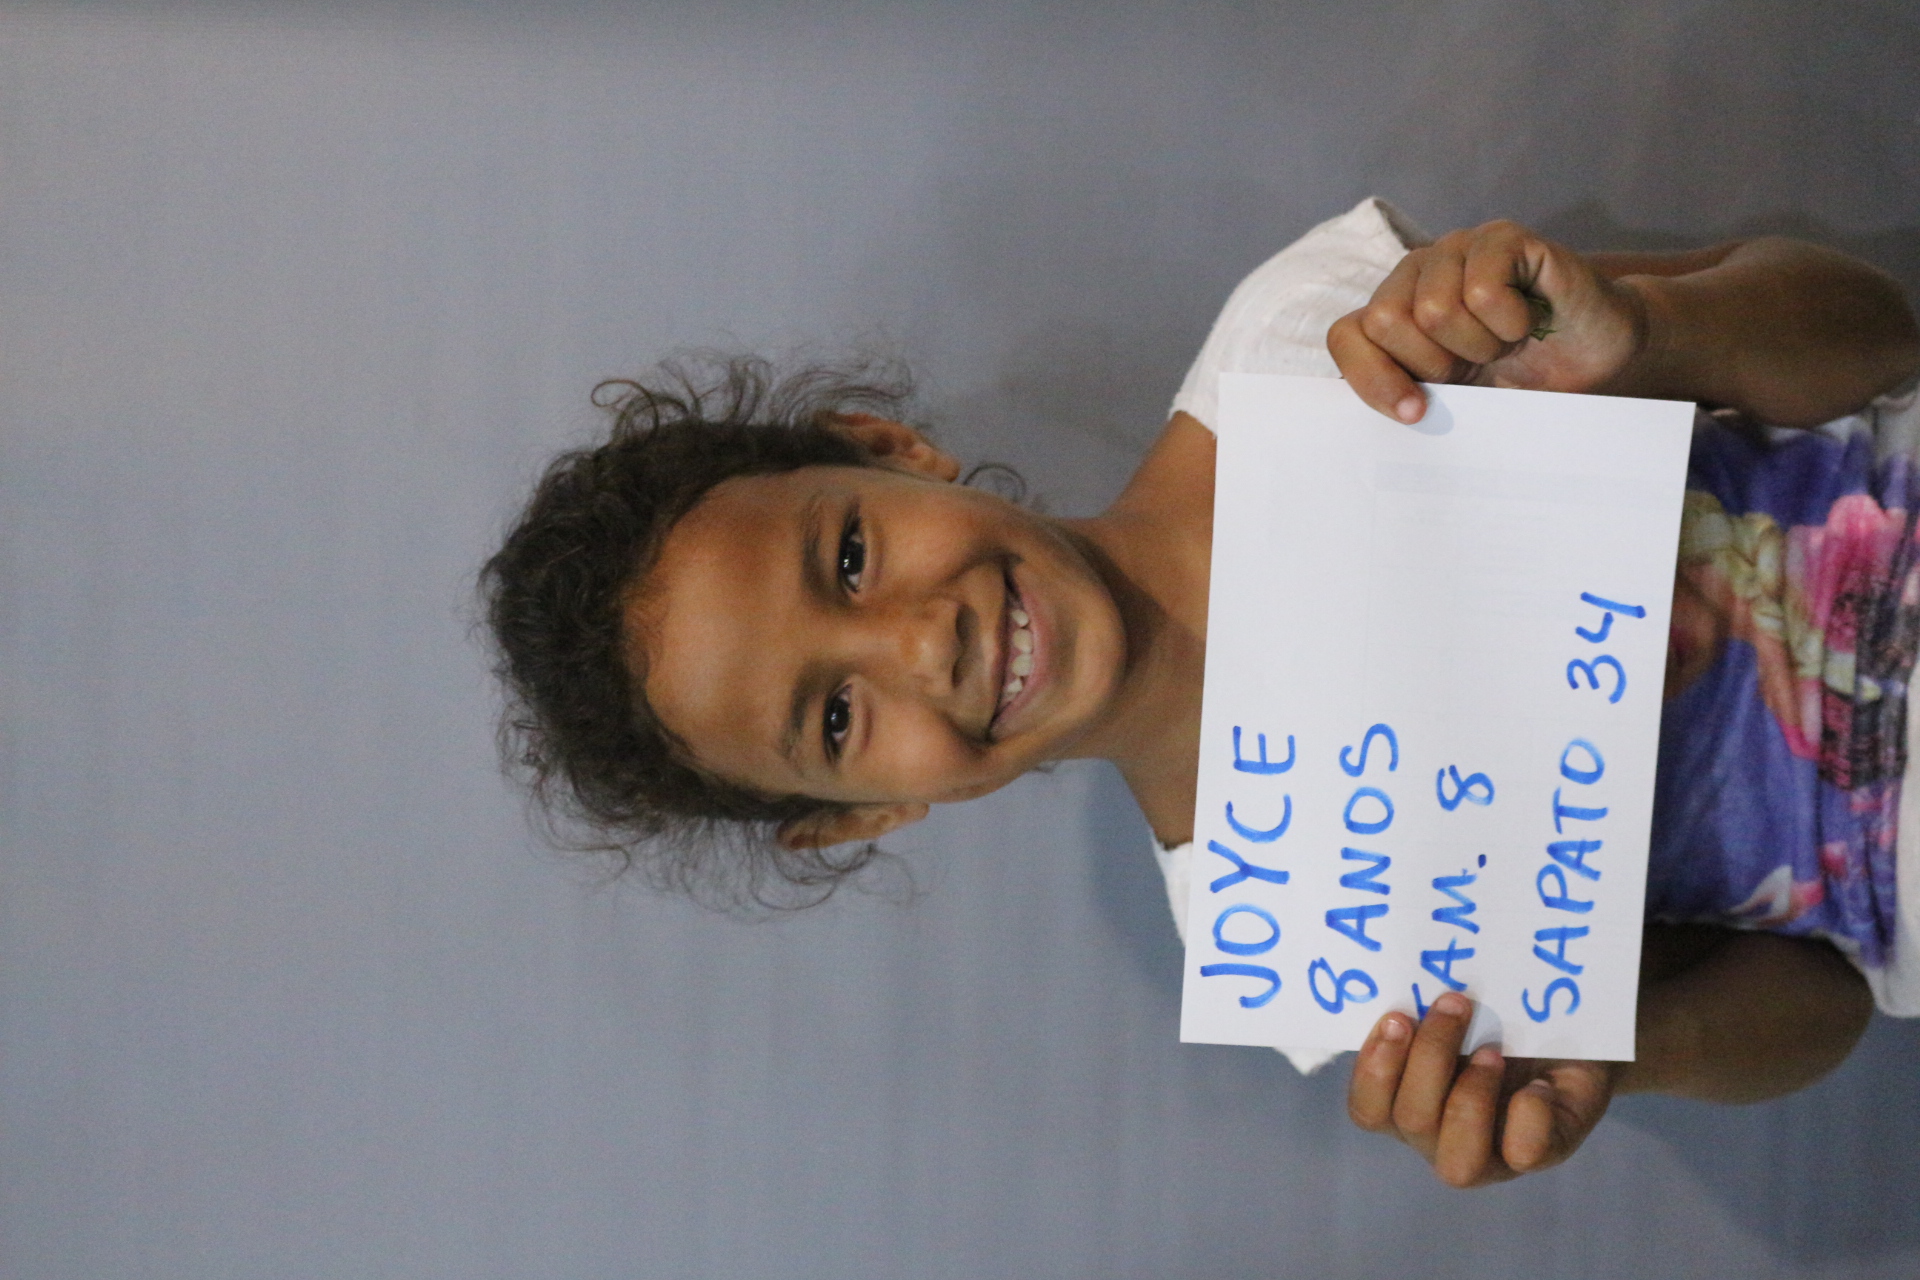 JOYCE
8 ANOS
TAM. 8
SAPATO 34